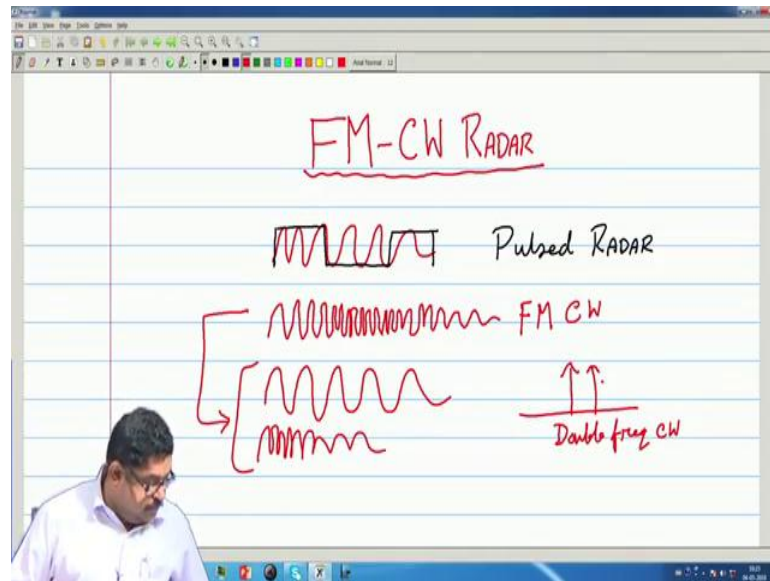 File Edit View Page Tools Options Help
Arial Normal 12
FM-CW RADAR
Pulsed RADAR
FM CW
Double freq CW